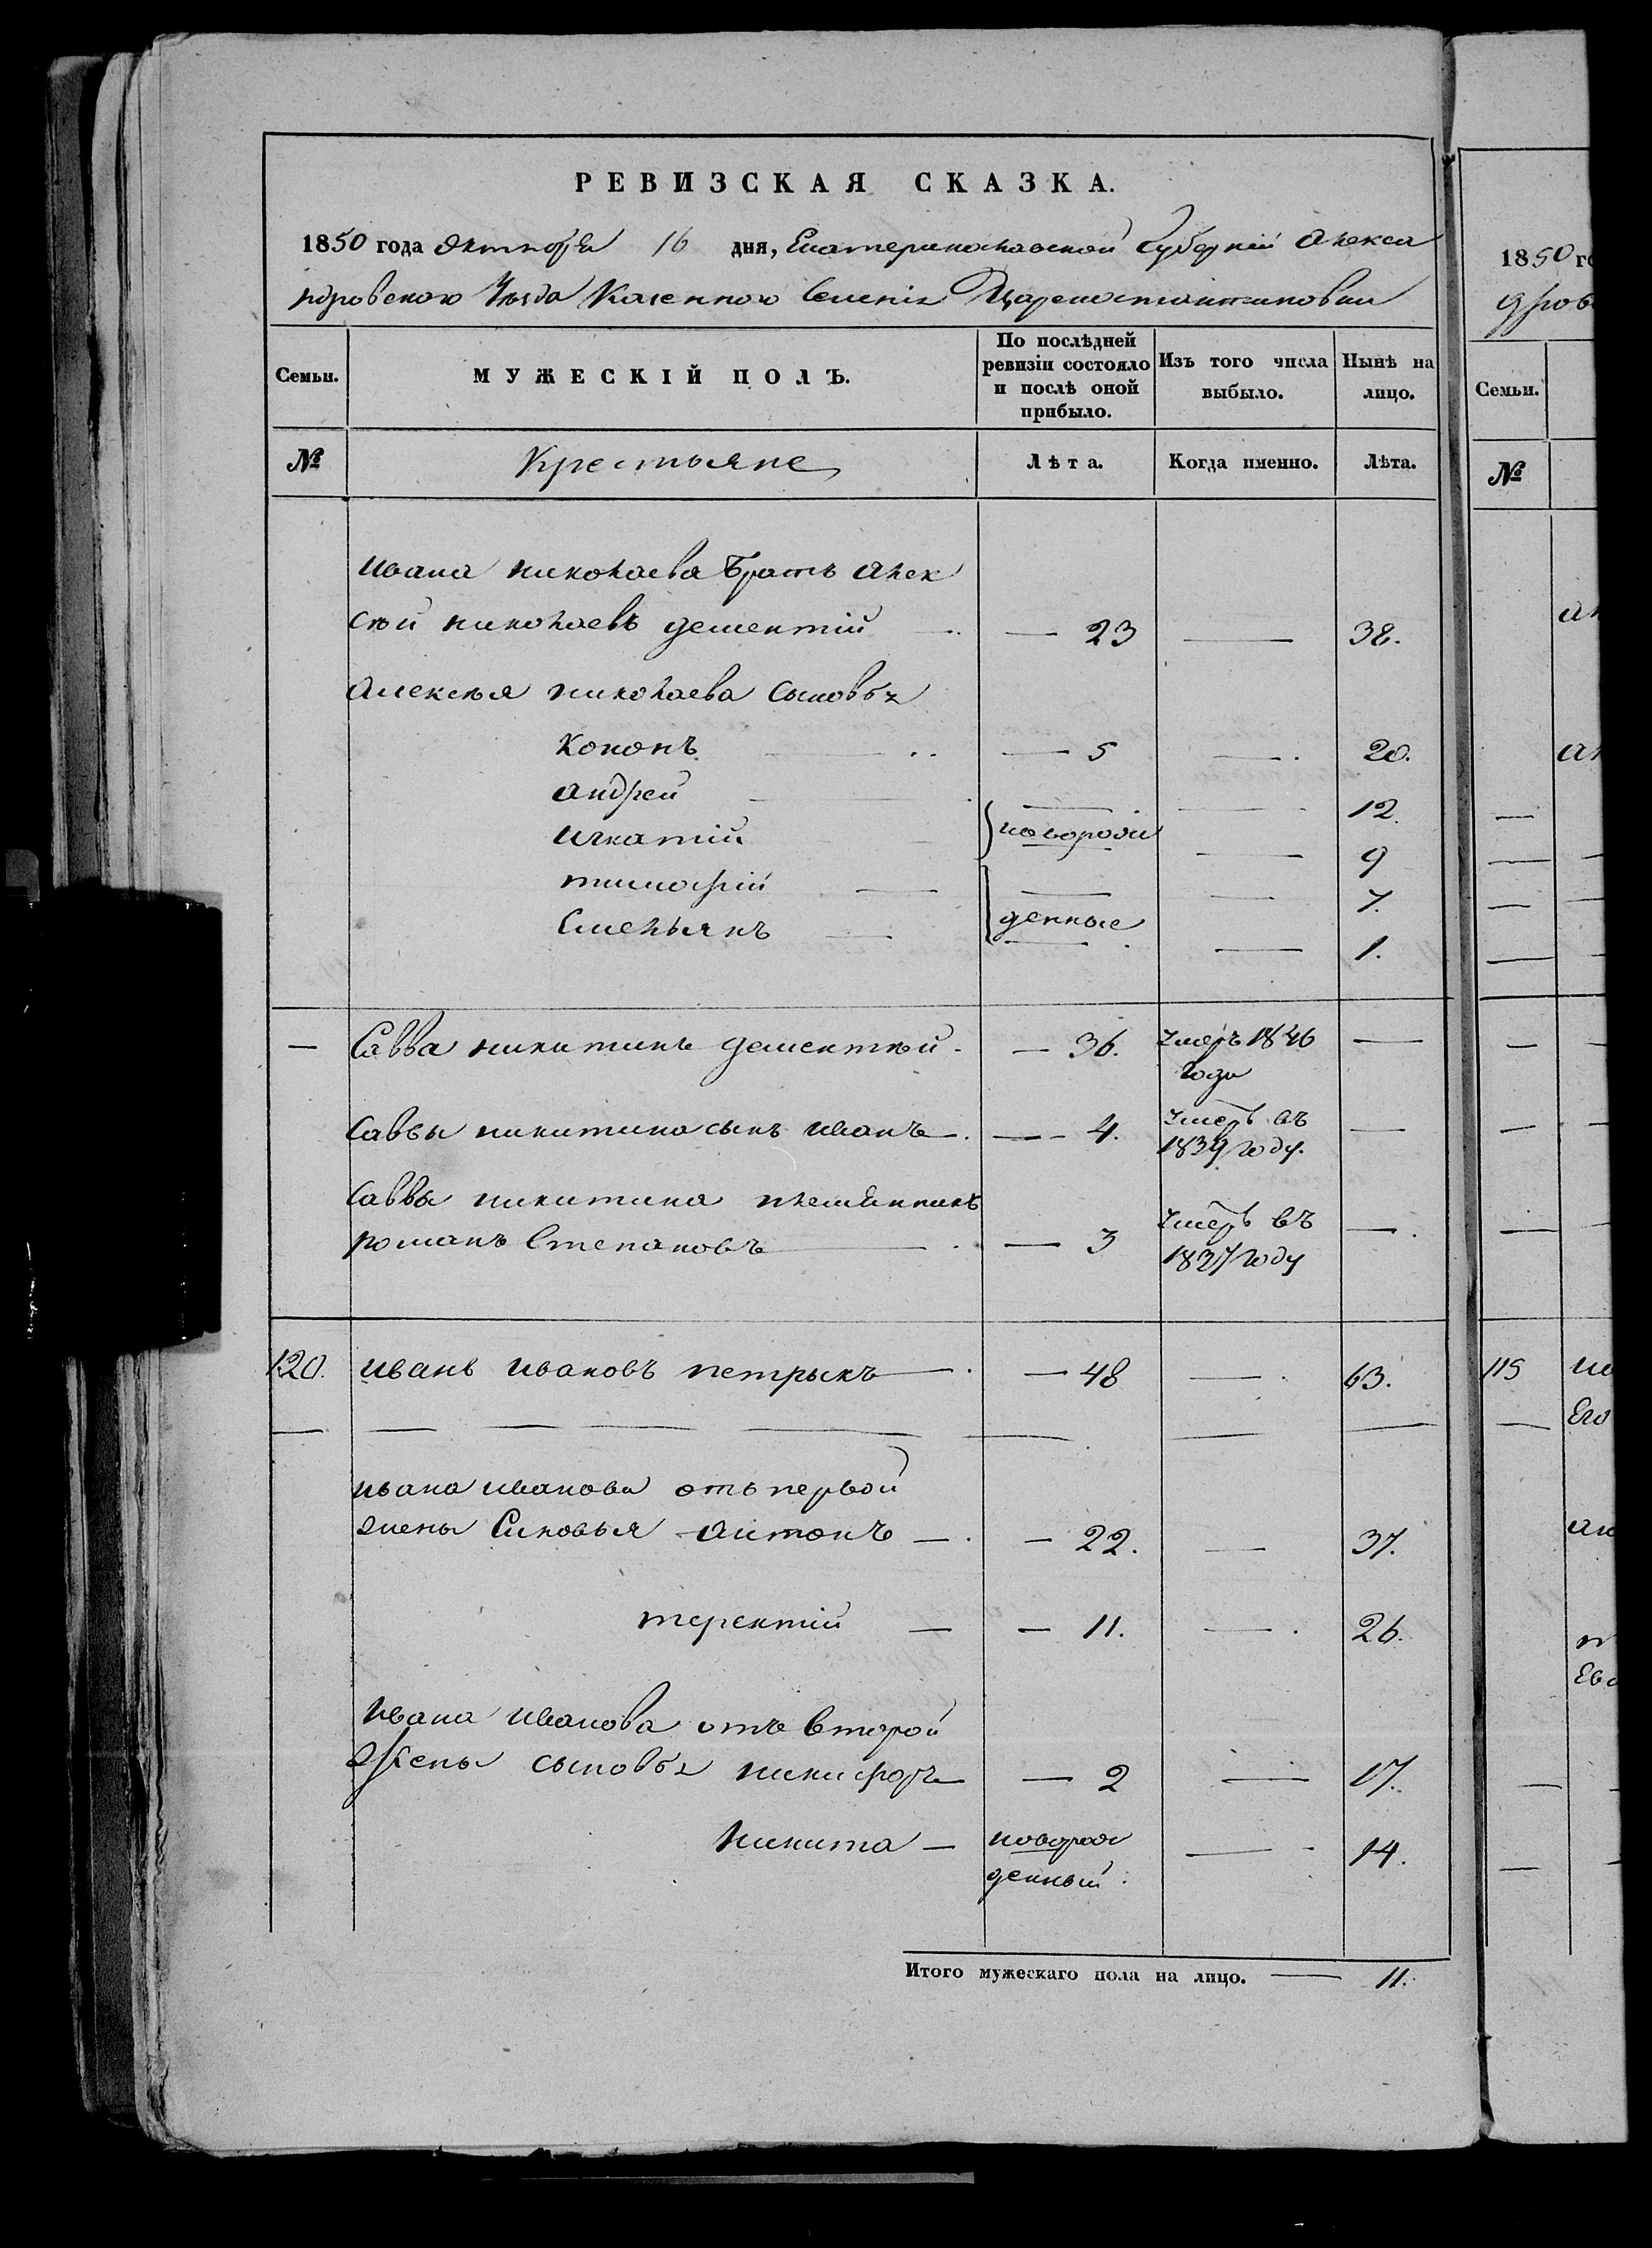 РЕВИЗСКАЯ СКАЗКА.
1850 года октября 16 дня, Екатеринославской Губерніи Алекса
ндровского Уезда Казенного Селенія Цареконстантиновки
Семьи.
МУЖЕСКІЙ ПОЛЪ.
По послѣдней ревизіи состояло и послѣ оной прибыло.
Изъ того числа выбыло.
Нынѣ на лицо.
№
Крестьяне
Лѣта.
Когда именно.
Лѣта.
Ивана Николаева Братъ Алек
сѣй Николаевъ Дементій — 23 — 38.
Алексѣя Николаева Сыновья
Кононъ — 5 — 20.
Андрей — — 12.
Игнатій новорож — 9
Тимофій — — 7.
Емельянъ денные — 1.
— Савва Никитинъ Дементѣй — 36. умеръ 1846 —
года
Саввы Никитина сынъ Иванъ — 4. умеръ въ —
1839 году.
Саввы Никитина племянникъ
Романъ Степановъ — 3 умеръ въ —
1837 году
120. Иванъ Ивановъ Петрыкъ — 48 — 63.
Ивана Иванова отъ первой
жены Сыновья Антонъ — 22. — 37.
Терентій — 11. — 26.
Ивана Иванова отъ второй
жены сыновья Никифоръ — 2 — 17.
Никита — новорож — 14.
денный
Итого мужескаго пола на лицо. — 11.
1850 го
дров
Семьи.
№
ал
ал
115
Его